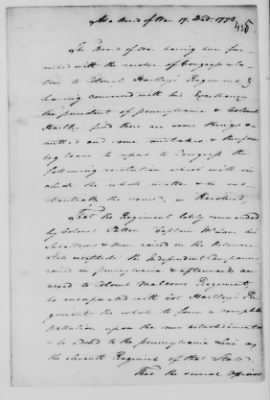 At a Board of War 17. Decr. 1778
The Board of War having been fur-
nished with the resolve of Congress rela-
tion to Colonel Hartley's Regiment, &
having conversed with his Excellency
the president of Pennsylvania & Colonel
Hartley find there are some things o-
mitted and some mistakes & therefore
beg leave to report to Congress the
following resolution which will in-
clude the whole matter & be sub-
stantially the same,
That the Regiment lately commanded
by Colonel Patton Captain
& men raised in the Delaware
State excepted the Independent Companies
raised in Pennsylvania & afterwards an-
nexed to Colonel Malcoms Regiment,
be incorporated with Col Hartley's Re-
giment the whole to form a complete
Battalion upon the new establishment
to be added to the Pennsylvania line as
the eleventh Regiment of that State.
That the several Officers